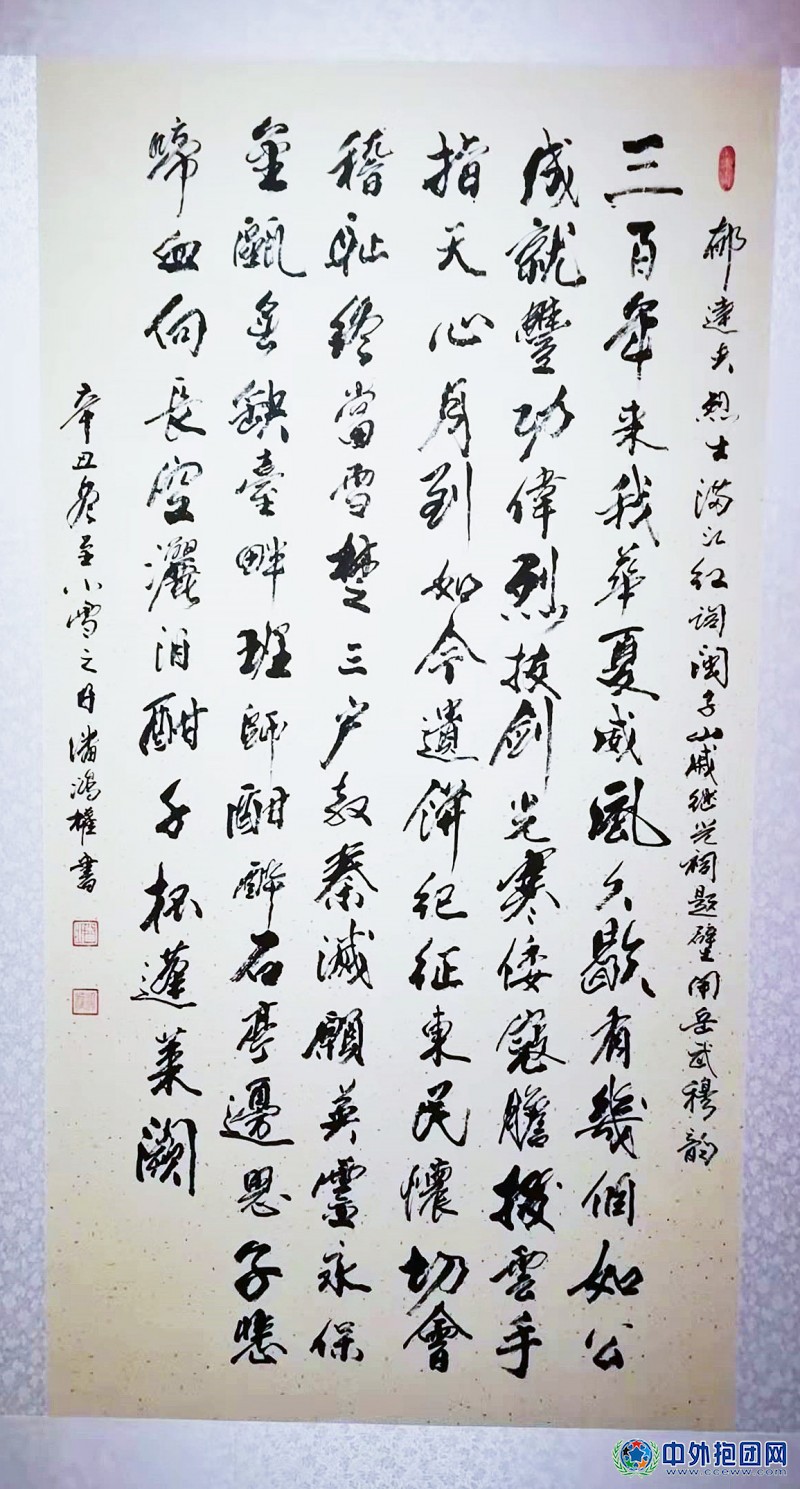 郁達夫烈士滿江红詞閩于山戚继光祠題壁用岳武穆韵
三百年来我華夏威風久歇有幾個如公
成就豐功偉烈拔劍光寒倭寇膽撥雲手
指天心月到如今遺餅紀征東民懷切會
稽耻終當雪楚三户教秦滅願英靈永保
金甌無缺臺畔班師酣醉石亭邊思子悲
啼血向長空灑泪酣千杯蓬萊闕
辛丑冬至小雪之日潘鴻權書
中外抱团网
www.cceww.com